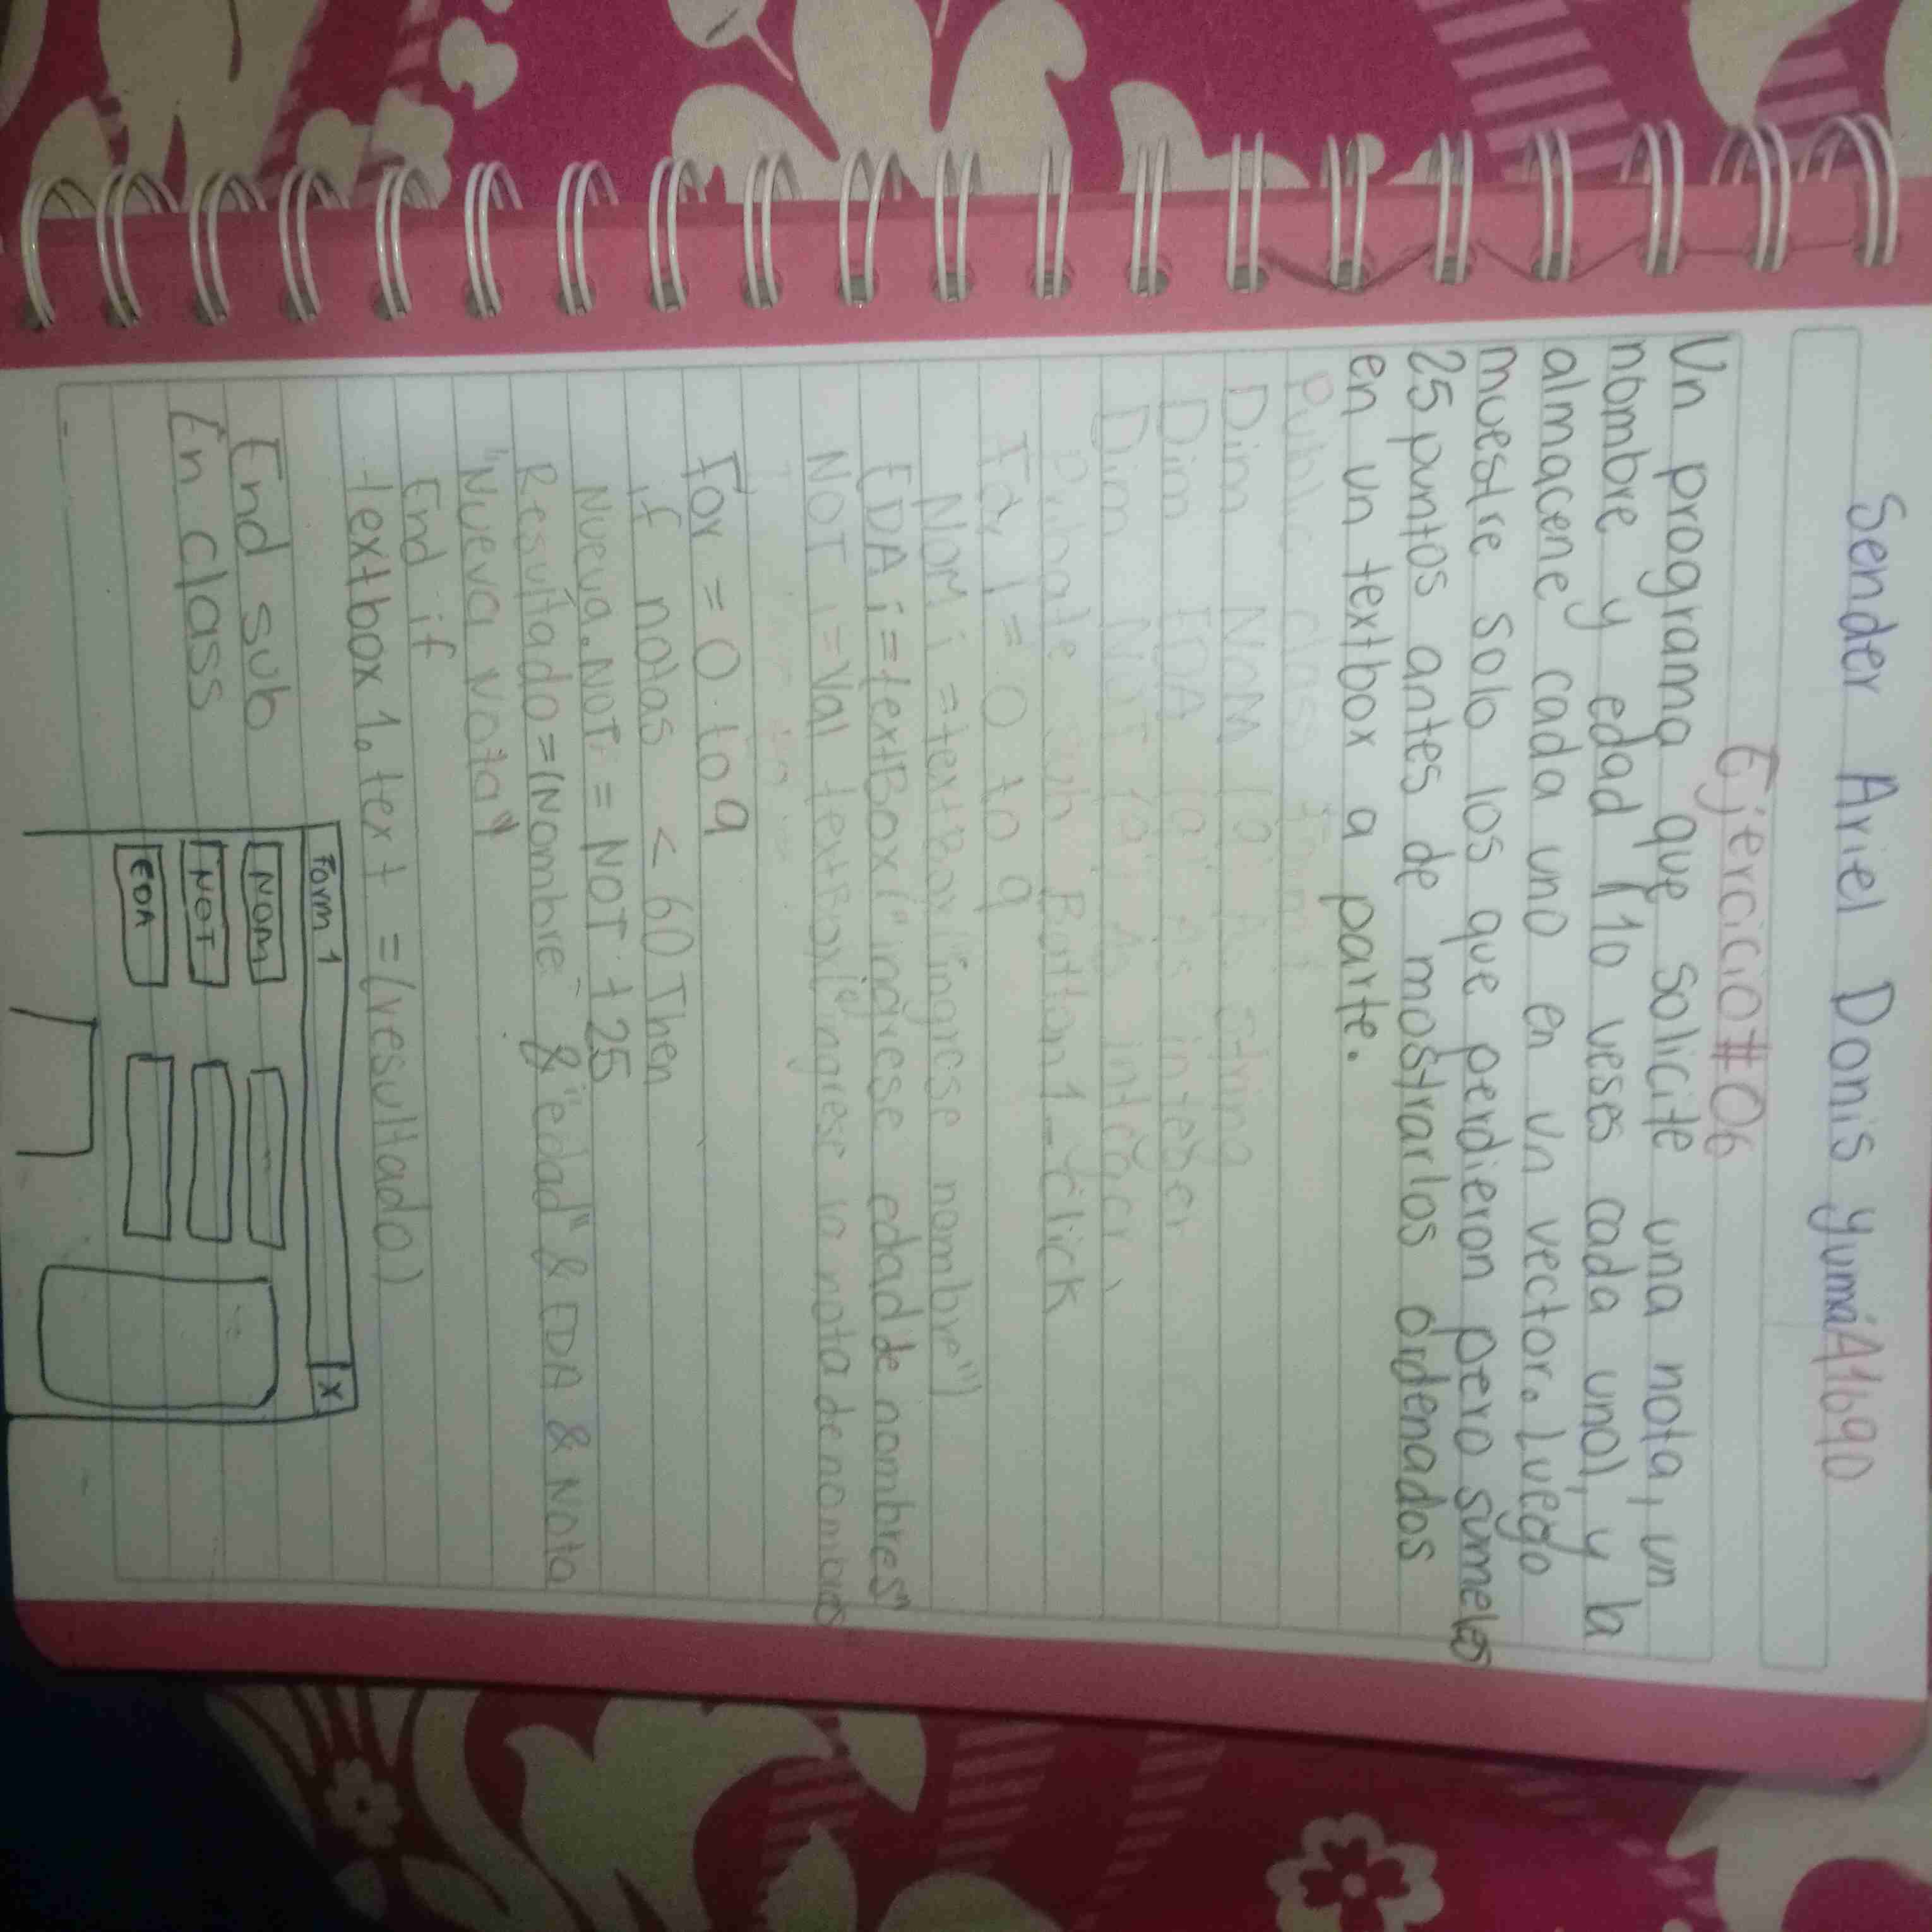 Sender Ariel Donis Yumá A1690
Ejercicio #06
Un programa que solicite una nota, un
nombre y edad (10 veses cada uno), y la
almacene cada uno en un vector. Luego
muestre solo los que perdieron pero sumeles
25 puntos antes de mostrarlos ordenados
en un textbox a parte.
Public class Form1
Dim NOM (9) As string
Dim EDA (9) As integer
Dim NOT (9) As integer
Pribate sub Button1_click
For I = 0 to 9
NOM i = textBox ("ingrese nombre")
EDA i = textBox ("ingrese edad de nombres"
NOT i = Val textBox ("ingrese la nota de nombres
For = 0 to 9
if notas < 60 Then
Nueva.NOT = NOT + 25
Resultado = (Nombre & "edad" & EDA & Nota
"Nueva Nota"
End if
textbox 1. text = (resultado)
End sub
En class
Form 1 X
NOM
NOT
EDA